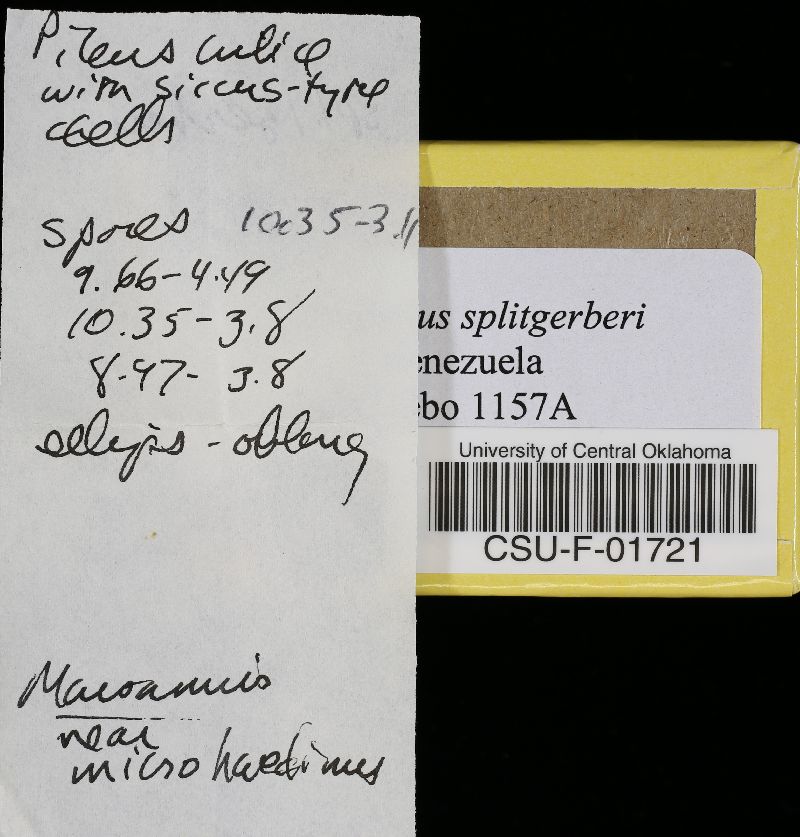 Pileus cutice
with siccus-type
cells
spores 10.35-3.
9.66-4.49
10.35-3.8
8.97- 3.8
ellips - oblong
Marasmius
near
micro haedinus
us splitgerberi
enezuela
bo 1157A
University of Central Oklahoma
CSU-F-01721